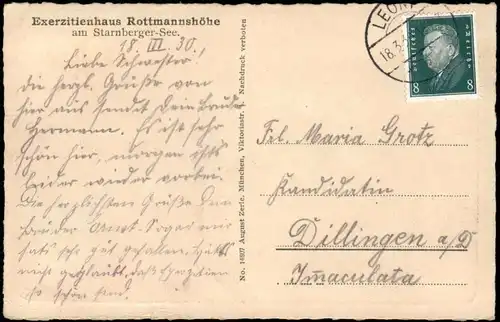 Exerzitienhaus Rottmannshöhe
am Starnberger-See.
18. III. 30.
Liebe Schwester!
die herzl. Grüße von
hier aus sendet Dein Bruder
Hermann. Es ist sehr
schön hier, morgen ists
leider wieder vorbei.
Die herzlichsten Grüße Dein
Bruder Sogar mir
hats sehr gut gefallen, hätte
nicht geglaubt, daß Exerzitien
so schön sind.
No. 14927 August Zerle, München, Viktoriastr. Nachdruck verboten
LEONI
18.3.
Deutsches Reich
8 8
Frl. Maria Grotz
Kandidatin
Dillingen a/D
Immaculata